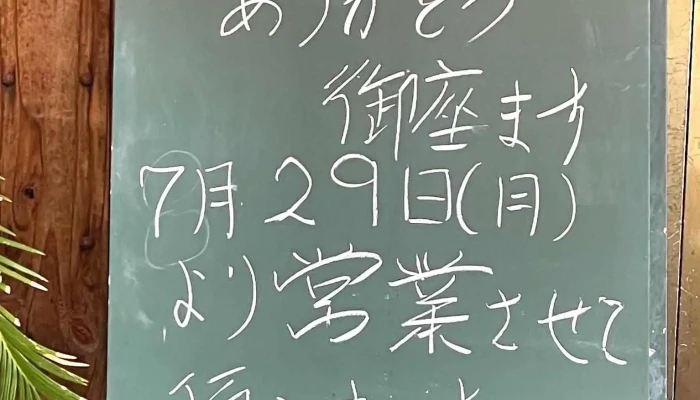 ありがとう
御座ます
7月29日(月)
より常業させて